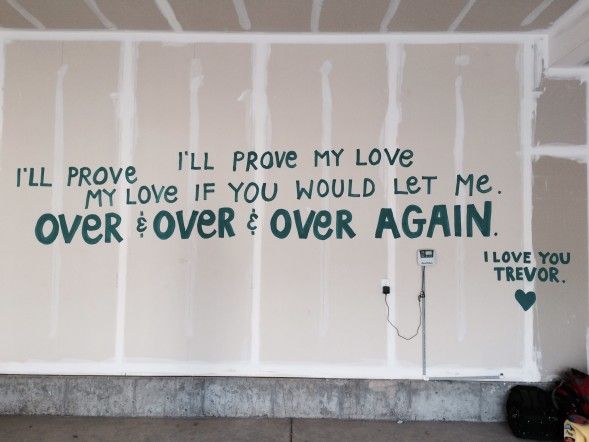 I'LL PROVE MY LOVE
I'LL PROVE
MY LOVE IF YOU WOULD LET ME.
OVER & OVER & OVER AGAIN.
I LOVE YOU
TREVOR.